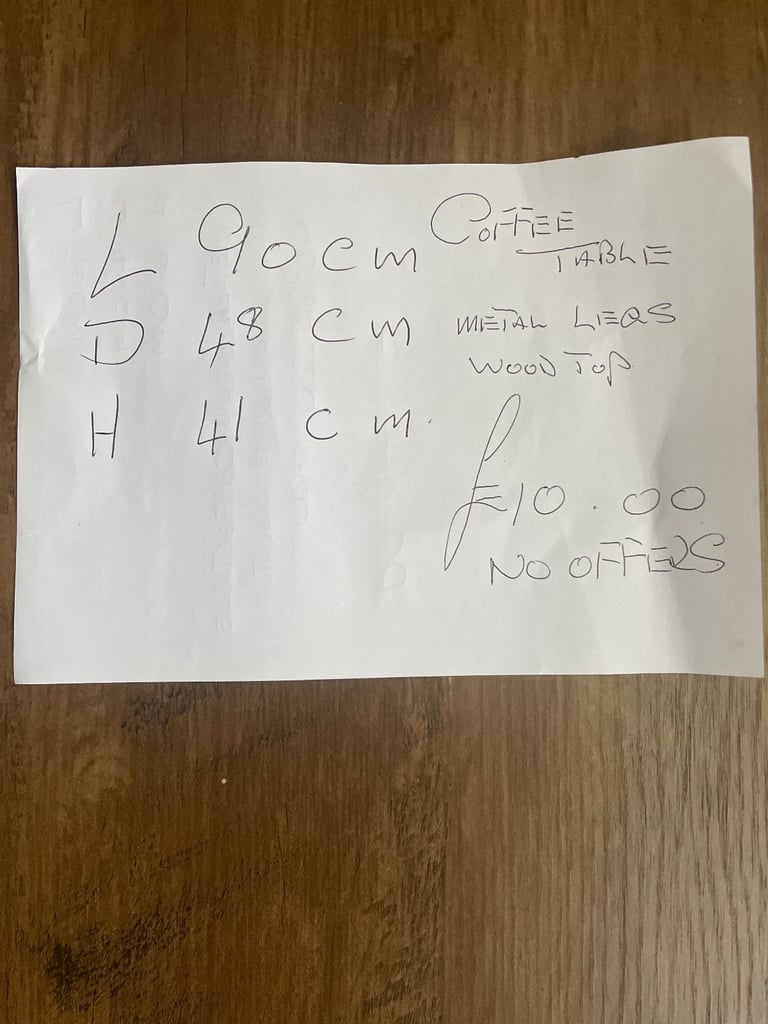 L 90 cm
D 48 cm
H 41 cm.
COFFEE
TABLE
METAL LEGS
WOOD TOP
£10.00
NO OFFERS